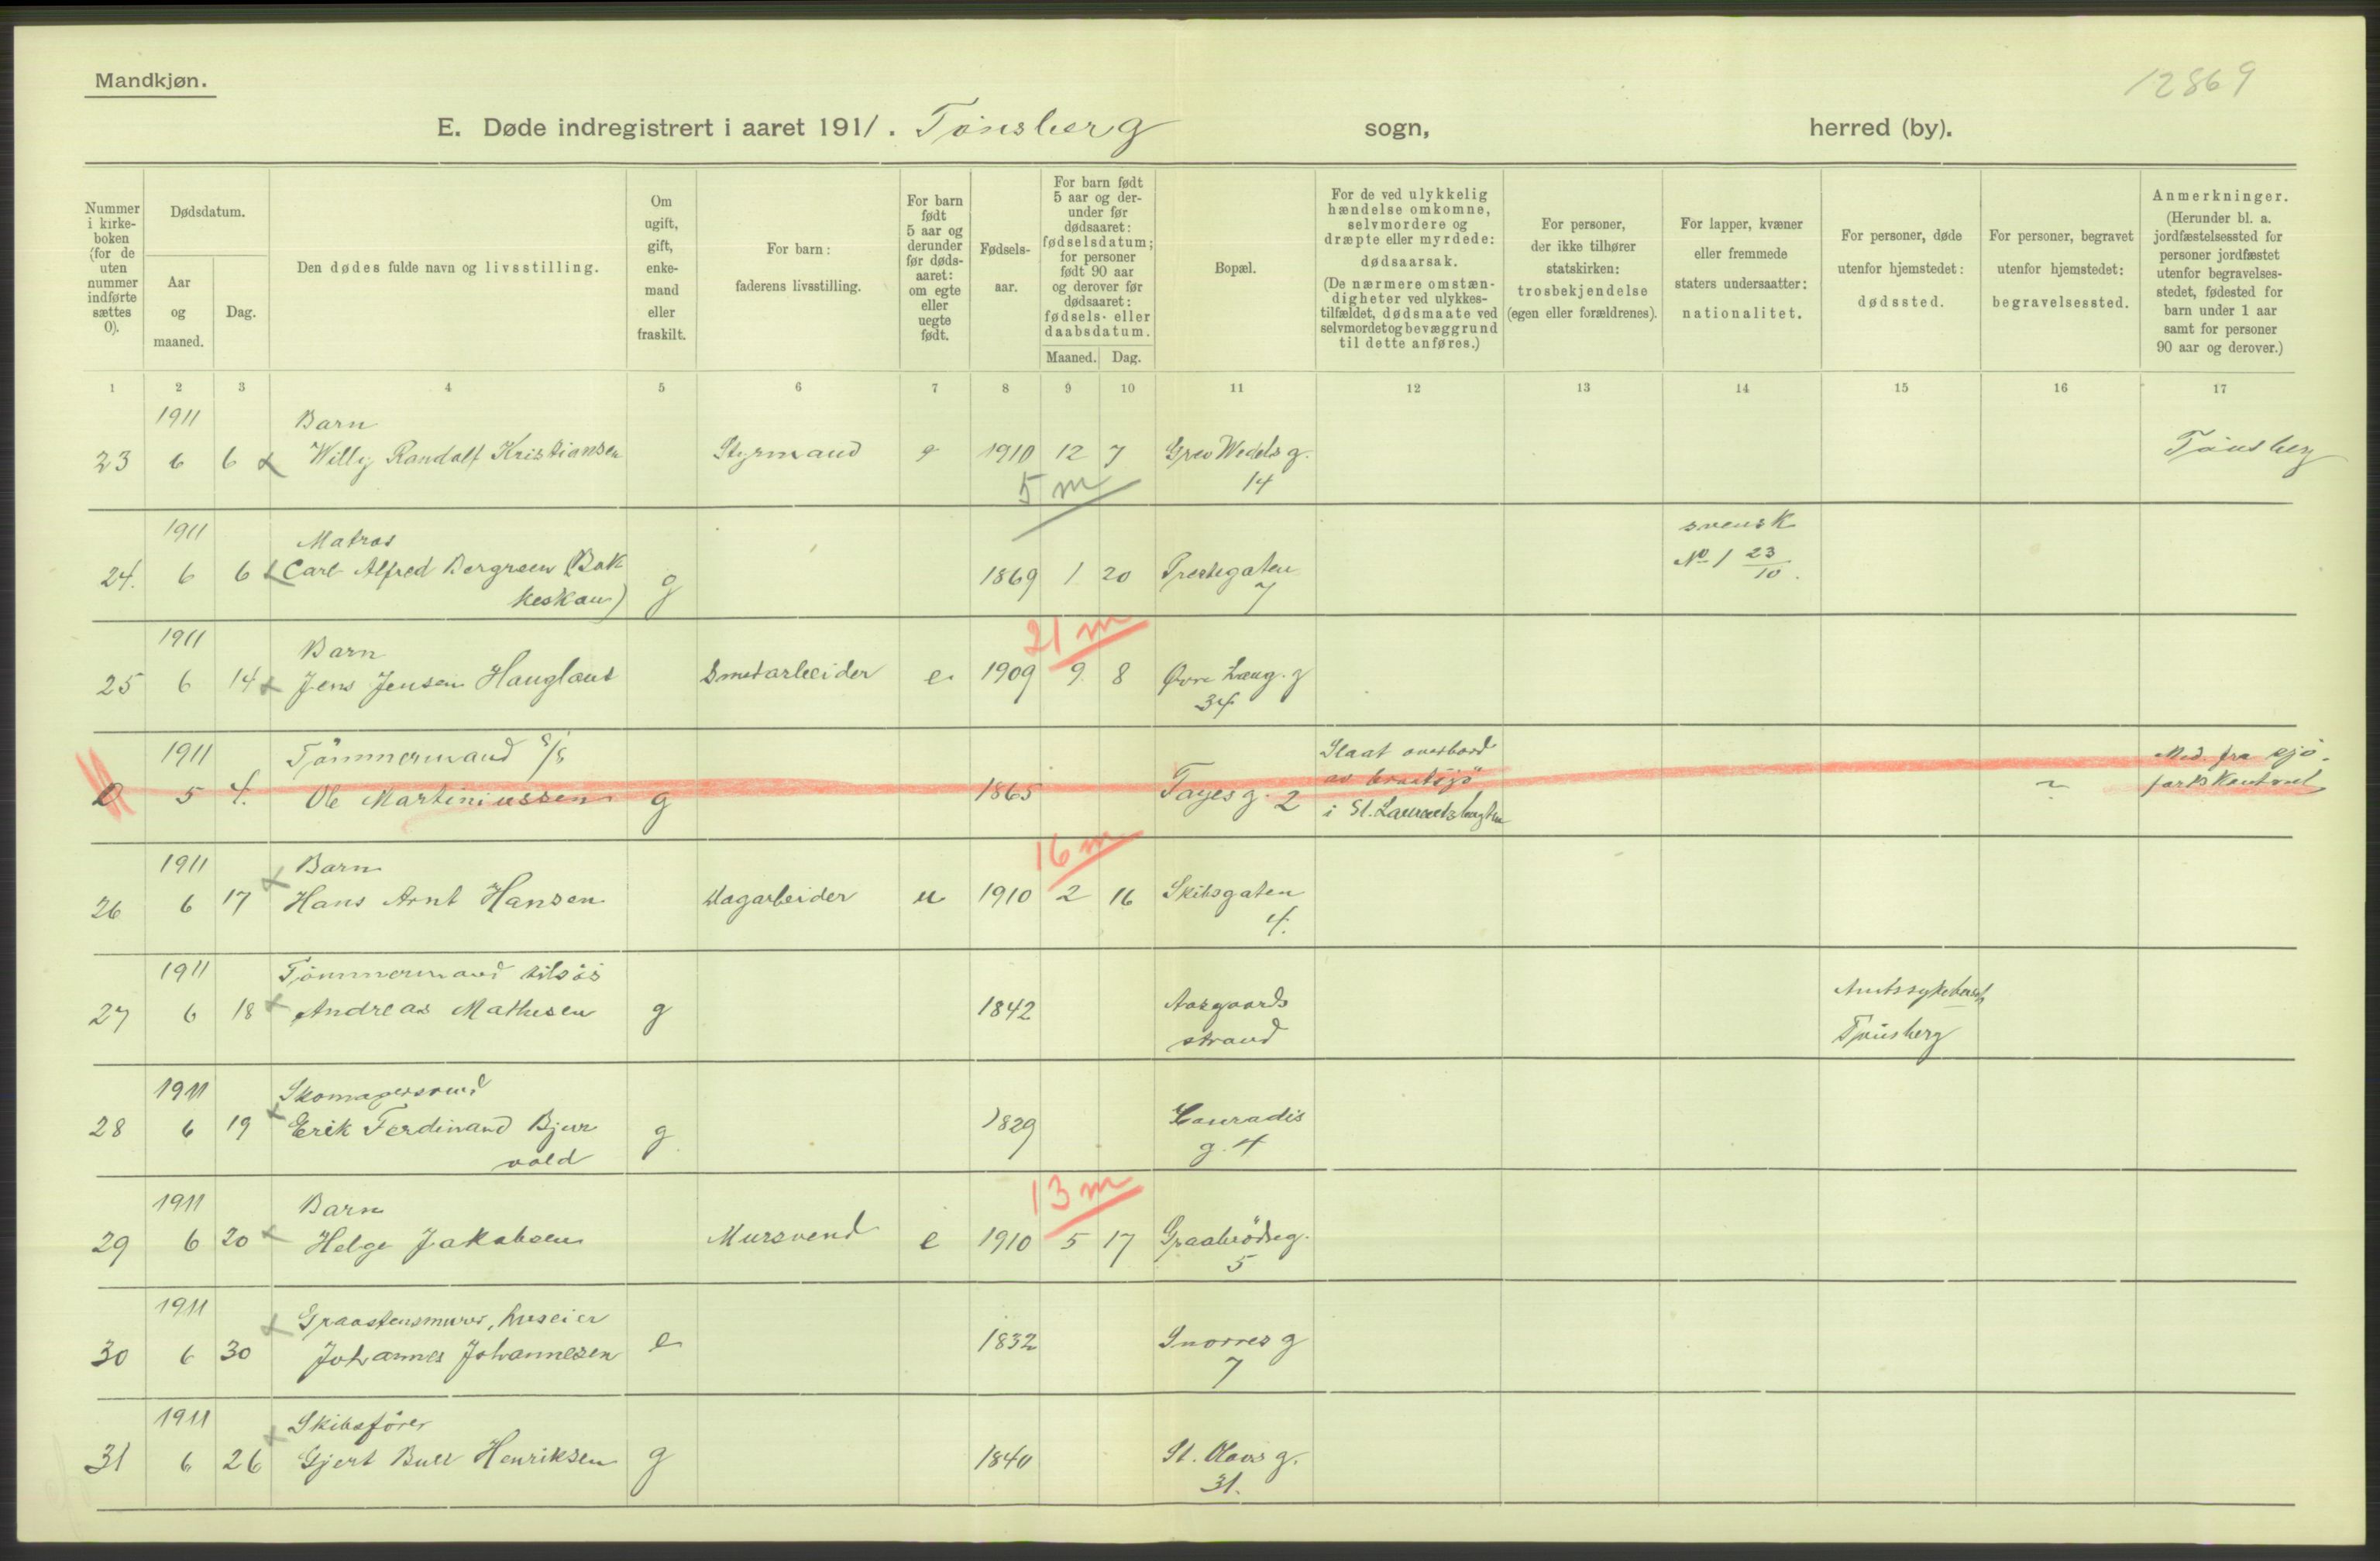 Mandkjøn.
12869
E. Døde indregistrert i aaret 1911. Tønsberg sogn, herred (by).
Nummer i kirke-boken (for de uten nummer indførte sættes 0).
Dødsdatum.
Aar og maaned.
Dag.
Den dødes fulde navn og livsstilling.
Om ugift, gift, enke-mand eller fraskilt.
For barn: faderens livsstilling.
For barn født 5 aar og derunder før døds-aaret: om egte eller uegte født.
Fødsels-aar.
For barn født 5 aar og der-under før dødsaaret: fødselsdatum; for personer født 90 aar og derover før dødsaaret: fødsels- eller daabsdatum.
Maaned. Dag.
Bopæl.
For de ved ulykkelig hændelse omkomne, selvmordere og dræpte eller myrdede: dødsaarsak.
(De nærmere omstæn-digheter ved ulykkes-tilfældet, dødsmaate ved selvmord et og bevæggrund til dette anføres.)
For personer, der ikke tilhører statskirken: trosbekjendelse (egen eller forældrenes).
For lapper, kvæner eller fremmede staters undersaatter: nationalitet.
For personer, døde utenfor hjemstedet: dødssted.
For personer, begravet utenfor hjemstedet: begravelsessted.
Anmerkninger.
(Herunder bl. a. jordfæstelsessted for personer jordfæstet utenfor begravelses-stedet, fødested for barn under 1 aar samt for personer 90 aar og derover.)
1 2 3 4 5 6 7 8 9 10 11 12 13 14 15 16 17
1911 Barn
23 6 6 Willy Randolf Kristiansen Styrmand e 1910 12 7 Grev Wedels g. Tønsberg
5 m 14
1911 Matros svensk
24. 6 6 Carl Alfred Bergreen (Bak g 1869 1 20 Prestegaten No 1 23/10.
keskau) 7
21 m
1911 Barn
25 6 14 Jens Jensen Haugland Smedarbeider e. 1909 9 8 Øvre Lang. g
34
1911 Tömmermand s/s Slaat overbord Med. fra sjö-
0 5 4. Ole Martiniussen g 1865 Fayes g. 2 av braatsjö fartskontoret
i St. Lawrentzbugten
16 m
1911 Barn
26 6 17 Hans Arnt Hansen Dagarbeider u 1910 2 16 Skibsgaten
4.
1911 Tömmermand tilsös
27 6 18 Andreas Mathisen g 1842 Aasgaards Amtssykehuset
strand Tønsberg
1911 Skomagersvend
28 6 19 Erik Ferdinand Bjur g 1829 Conradis
vold g. 4
13 m
1911 Barn
29 6 20 Helge Jakobsen Mursvend e 1910 5 17 Graabrödreg.
5
1911 Graastensmurer, huseier
30 6 30 Johannes Johannesen e 1832 Snorres g
7
1911 Skibsförer
31 6 26 Gjert Bull Henriksen g 1840 St. Olavs g.
31.